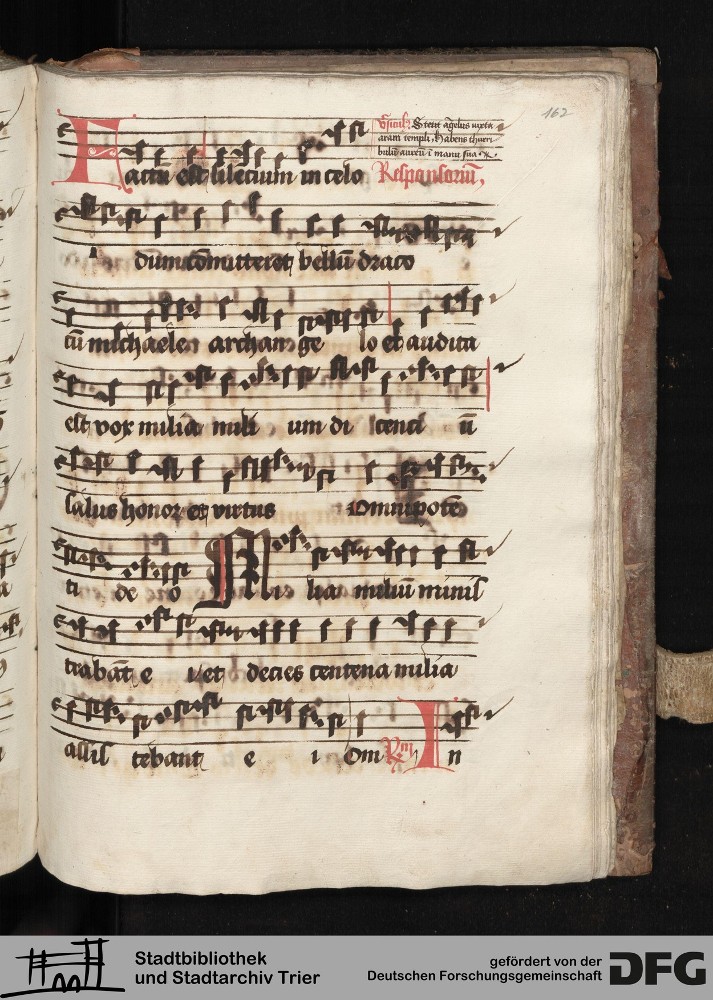 162
Vſicul₉ Stetit āgelus iuxta
aram templi, Habens thuri
bulū aureū ī manu ſua
Factū eſt ſilecium in celo Reſponſoriū,
dum cōmitteret bellū draco
cū michaele archan ge lo et audita
eſt vox milia mili um di cenci ū
ſalus honor et virtus Omnipotē
ti de o Mi lia miliū miniſ
trabāt e i et decies centena milia
aſſiſ tebant e i Om In
Stadtbibliothek
und Stadtarchiv Trier
gefördert von der
Deutschen Forschungsgemeinschaft DFG